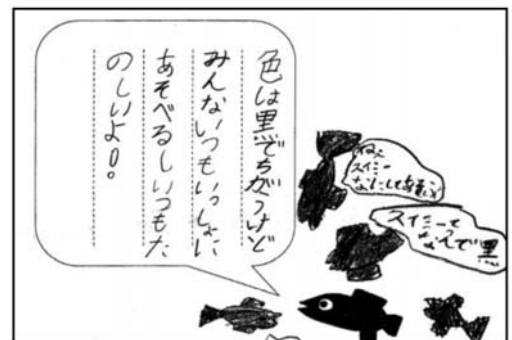 色は黒でちがうけど
みんないつもいっしょに
あそべるしいつもた
のしいよ!!
ねえ
スイミー
なにして遊ぶ
スイミーって
なんで黒